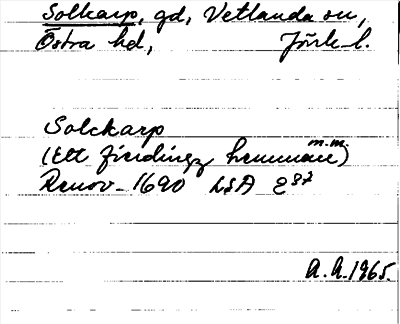 Solkarp, gd, Vetlanda sn,
Östra hd, Jönk. l.
Solckarp
(Ett fierdingz hemman m.m.)
Renov. 1690 LSA E87
A.A. 1965.